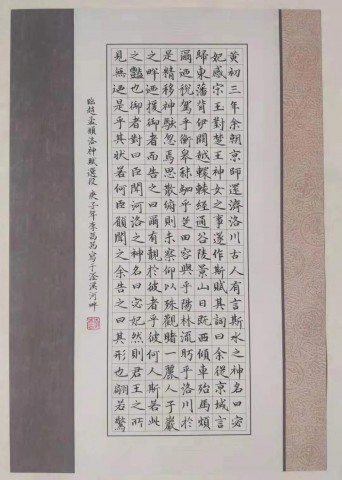 黄初三年余朝京師還濟洛川古人有言斯水之神名曰宓
妃感宋玉對楚王神女之事遂作斯賦其詞曰余從京域言
歸東藩背伊闕越轘轅經通谷陵景山日既西傾車殆馬煩
爾迺税駕乎衡皋秣駟乎芝田容與乎陽林流眄乎洛川於
是精移神駭忽焉思散俯則未察仰以殊觀睹一麗人于巖
之畔迺援御者而告之曰爾有覿於彼者乎彼何人斯若此
之豔也御者對曰臣聞河洛之神名曰宓妃然則君王之所
見無迺是乎其狀若何臣願聞之余告之曰其形也翩若驚
臨趙孟頫洛神賦選段 庚子年李 寫于 溪河畔